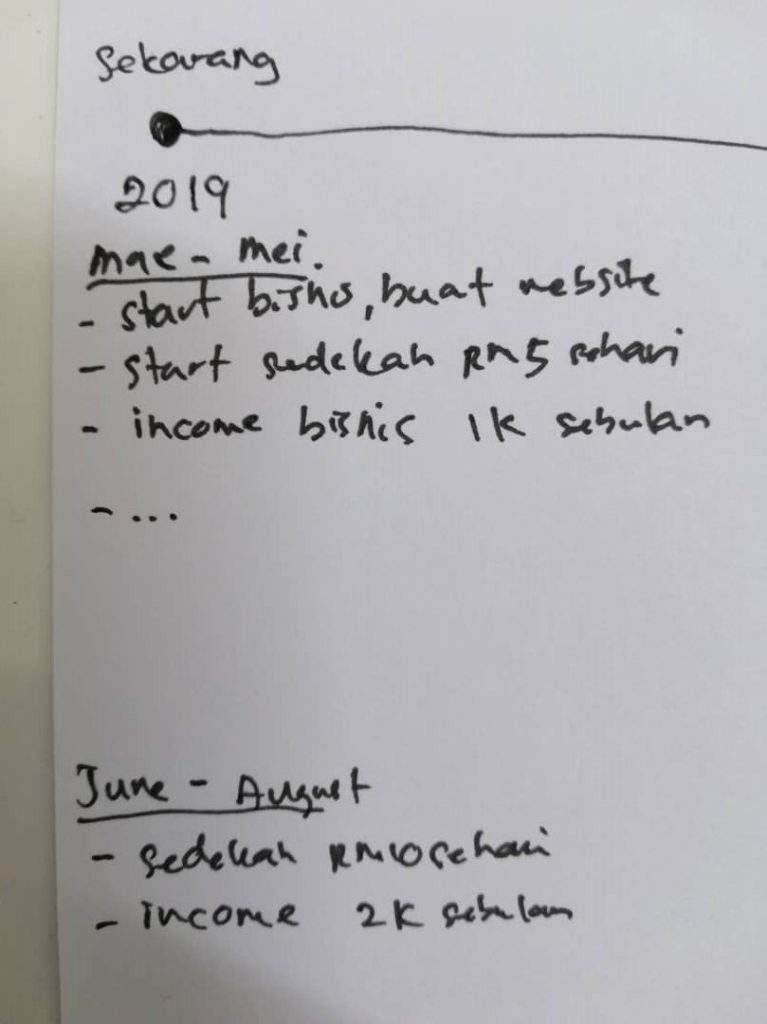 Sekarang
2019
mac - mei.
- start bisnis, buat website
- start sedekah RM5 sehari
- income bisnis 1K sebulan
- ...
June - August
- sedekah RM10 sehari
- income 2K sebulan